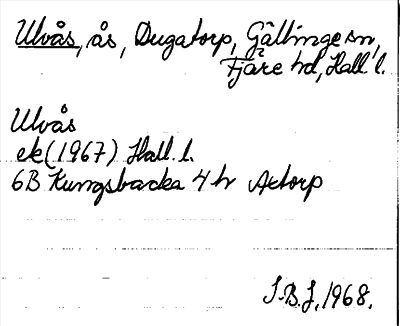 Ulvås, ås, Dugatorp, Gällinge sn,
Fjäre hd, Hall l.
Ulvås
ek (1967) Hall. l.
6B Kungsbacka 4 h Axtorp
S.B.J. 1968.